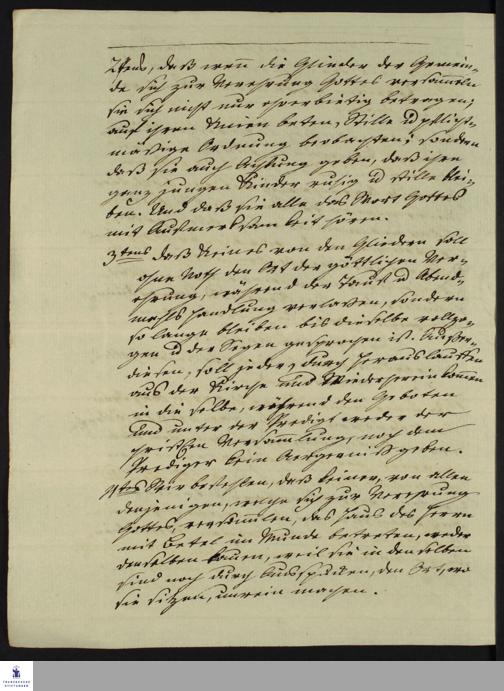 2tens, daß wen die Glieder der Gemein-
de sich zur Verehrung Gottes versameln
sie sich nicht nur ehrerbietig betragen;
auf ihren Knien beten, Stille u pflicht-
mäßige Ordnung beobachten; sondern
daß sie auch Achtung geben, daß ihre
ganz jungen Kinder ruhig u stille blei-
ben. Und daß sie alle das Wort Gottes
mit Aufmerksamkeit hören.
3tens daß Keines von den Gliedern soll
ohne Noth den Ort der göttlichen Ver-
ehrung, während der Taufe u Abend-
mahls handlung verlassen, sondern
so lange bleiben bis dieselbe vollzo-
gen u der Segen gesprochen ist. Außer-
diesen, soll jeder, durch herauslauffen
aus der Kirche und Wiederhereinkommen
in die selbe, während den Geboten
und unter der Predigt weder der
christlichen Versamlung, noch dem
Prediger kein Aergerniß geben.
4tens Wir befehlen, daß keiner, von allen
denjenigen, welche sich zur Verehrung
Gottes, versamlen, das Haus des Herrn
mit Betel im Munde betreten, weder
denselben kauen, weil sie in denselben
sind noch durch Ausspucken, den Ort, wo
sie sitzen, unrein machen.
FRANCKESCHE
STIFTUNGEN